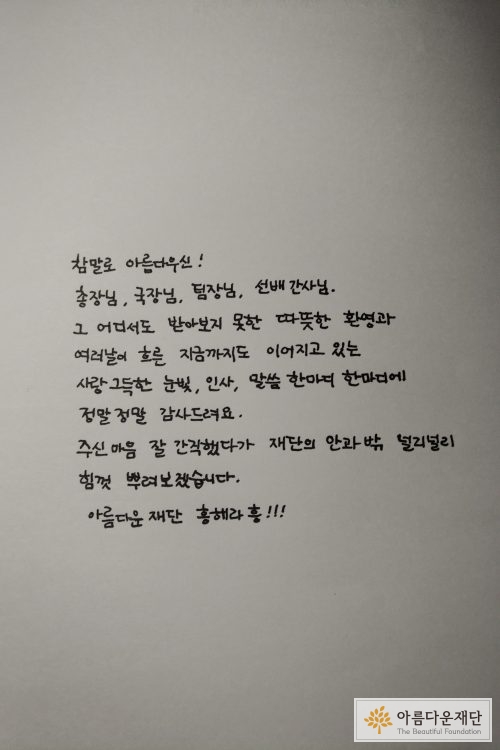 참말로 아름다우신!
총장님, 국장님, 팀장님, 선배 간사님.
그 어디서도 받아보지 못한 따뜻한 환영과
여러날이 흐른 지금까지도 이어지고 있는
사랑 그득한 눈빛, 인사, 말씀 한마디 한마디에
정말 정말 감사드려요.
주신 마음 잘 간직했다가 재단의 안과 밖 널리널리
힘껏 뿌려보겠습니다.
아름다운 재단 흥해라 흥!!!
아름다운재단
The Beautiful Foundation